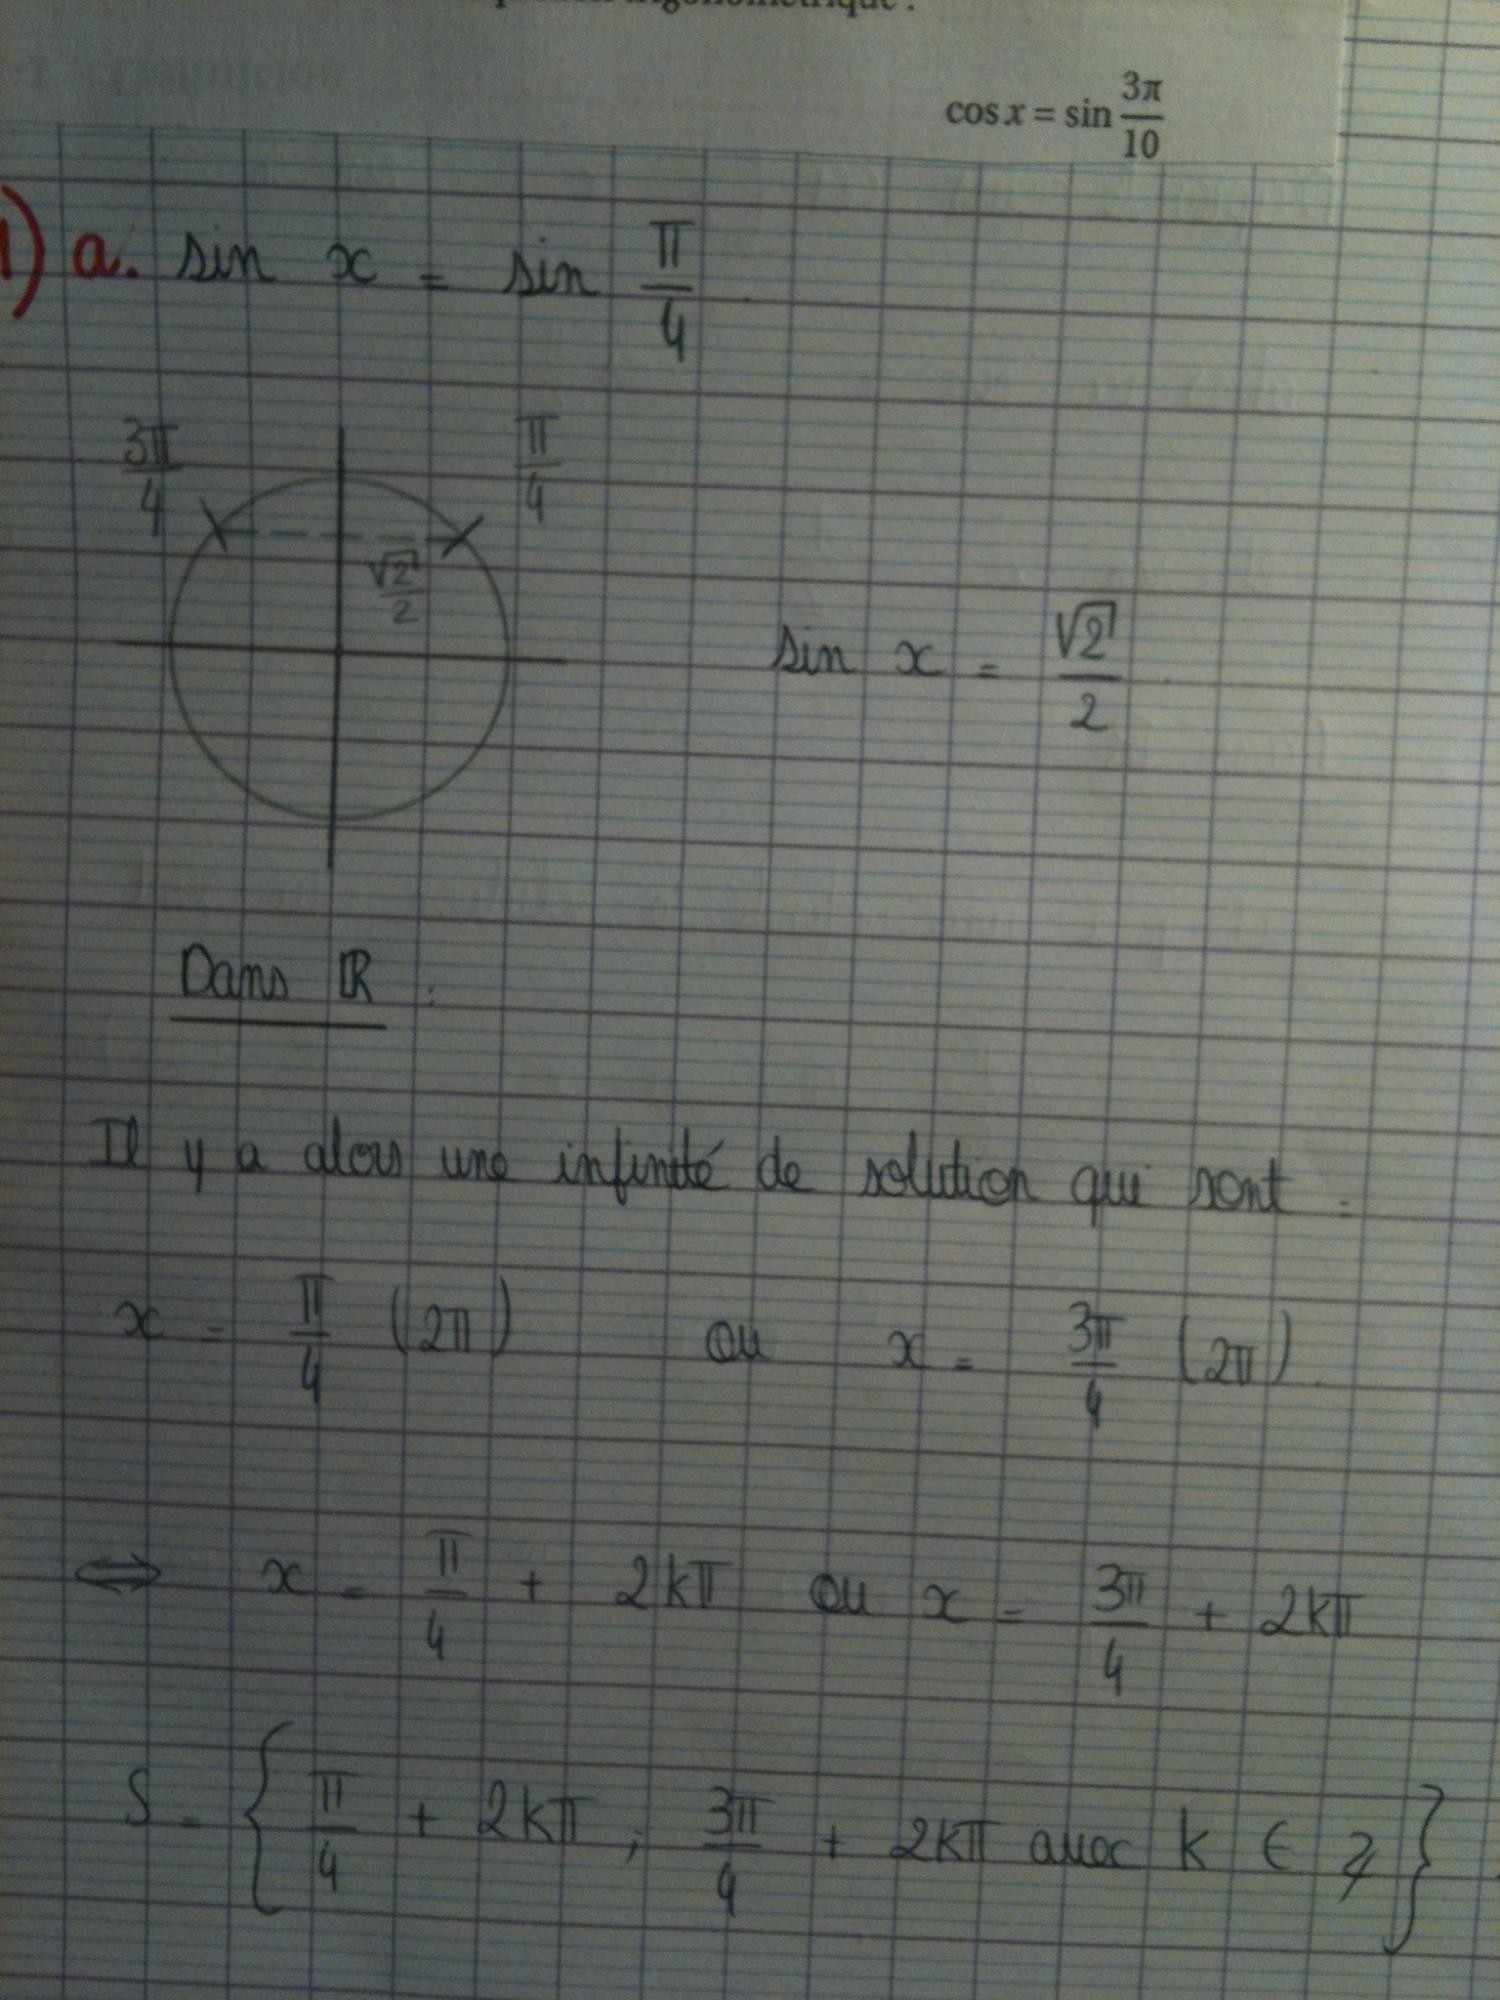 trigonométrique :
cos x = sin 3π/10
1) a. sin x = sin π/4
3π/4 π/4
√2/2
sin x = √2/2
Dans ℝ :
Il y a alors une infinité de solution qui sont :
x = π/4 (2π) ou x = 3π/4 (2π).
⇔ x = π/4 + 2kπ ou x = 3π/4 + 2kπ
S = { π/4 + 2kπ ; 3π/4 + 2kπ avec k ∈ ℤ }